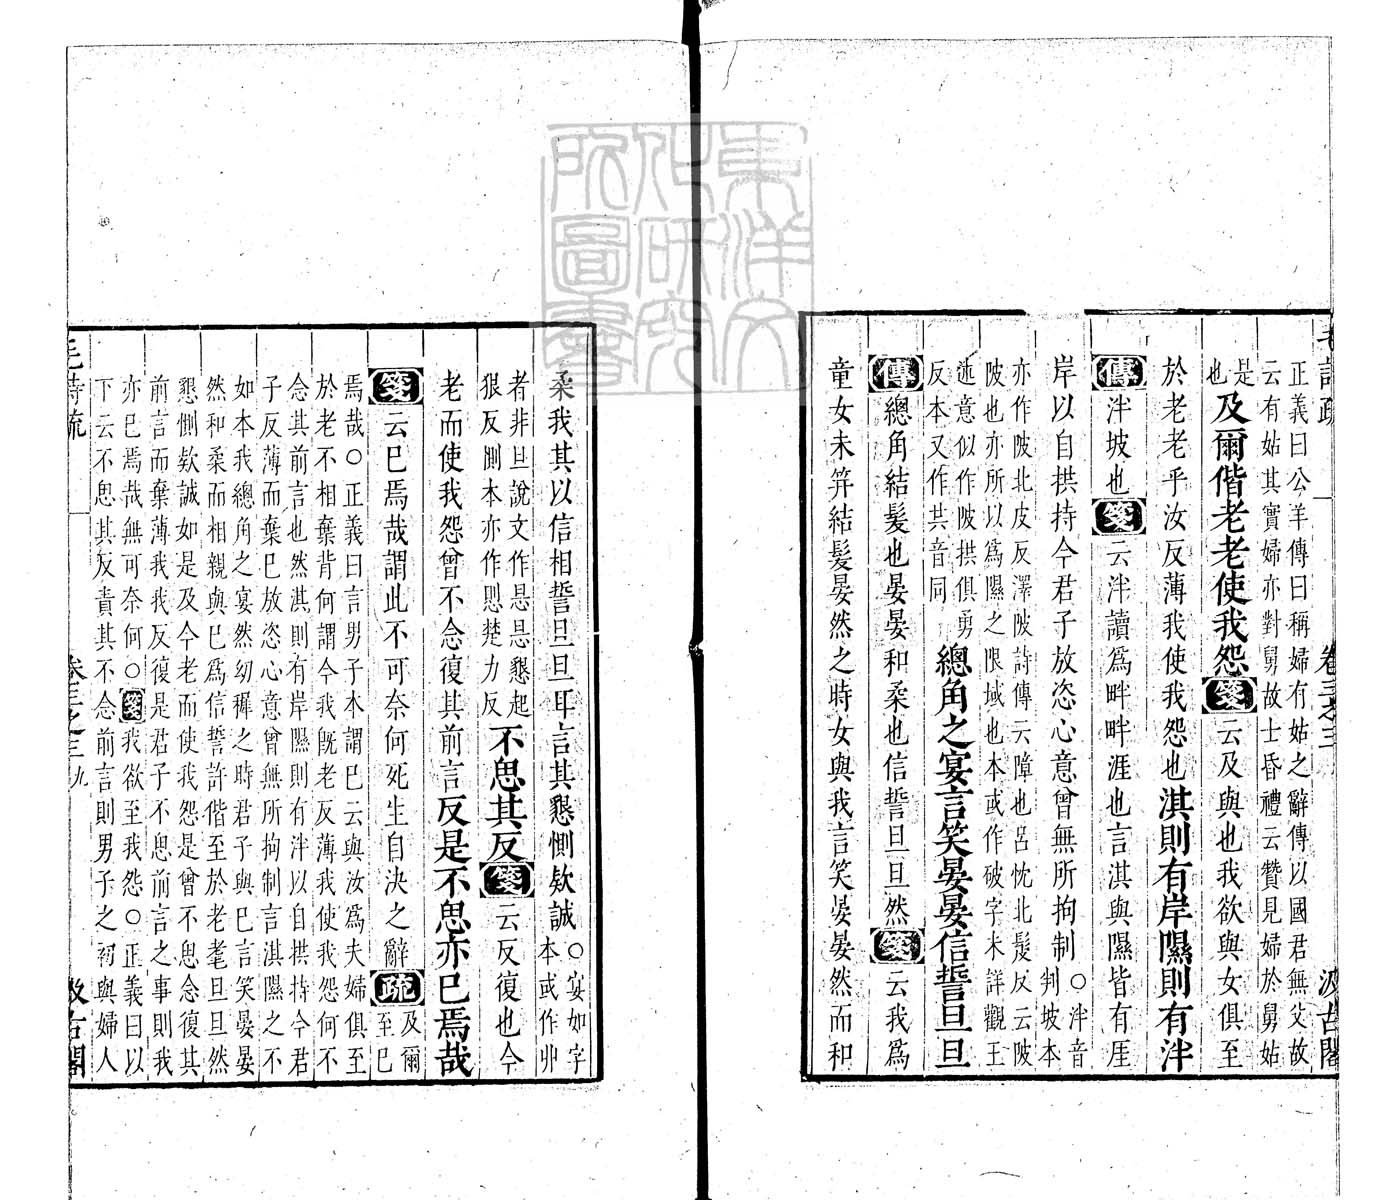 正義曰公羊傳曰稱婦有姑之辭傳以國君無父故
云有姑其實婦亦對舅故士昏禮云贊見婦於舅姑
是也及爾偕老老使我怨箋云及與也我欲與女俱至
於老老乎汝反薄我使我怨也淇則有岸隰則有泮
傳泮坡也箋云泮讀爲畔畔涯也言淇與隰皆有厓
岸以自拱持今君子放恣心意曾無所拘制○泮音判坡本
亦作陂北皮反澤陂詩傳云障也呂忱北髮反云陂
陂也亦所以爲隰之限域也本或作破字未詳觀王
述意似作陂拱俱勇
反本又作共音同總角之宴言笑晏晏信誓旦旦
傳總角結髮也晏晏和柔也信誓旦旦然箋云我爲
童女未笄結髮晏然之時女與我言笑晏晏然而和
柔我其以信相誓旦旦耳言其懇惻欵誠○宴如字本或作丱
者非旦說文作悬悬懇起
狠反惻本亦作恖楚力反不思其反箋云反復也今
老而使我怨曾不念復其前言反是不思亦已焉哉
箋云已焉哉謂此不可奈何死生自決之辭疏及爾至已
焉哉○正義曰言男子本謂巳云與汝爲夫婦俱至
於老不相棄背何謂今我旣老反薄我使我怨何不
念其前言也然淇則有岸隰則有泮以自拱持今君
子反薄而棄巳放恣心意曾無所拘制言淇隰之不
如本我總角之宴然幼穉之時君子與巳言笑晏晏
然和柔而相親與巳爲信誓許偕至於老耄旦旦然
懇惻欵誠如是及今老而使我怨是曾不思念復其
前言而棄薄我我反復是君子不思前言之事則我
亦已焉哉無可奈何○箋我欲至我怨○正義曰以
下云不思其反責其不念前言則男子之初與婦人
毛詩疏
卷三之三
九
汲古閣
東洋文化研究所圖書